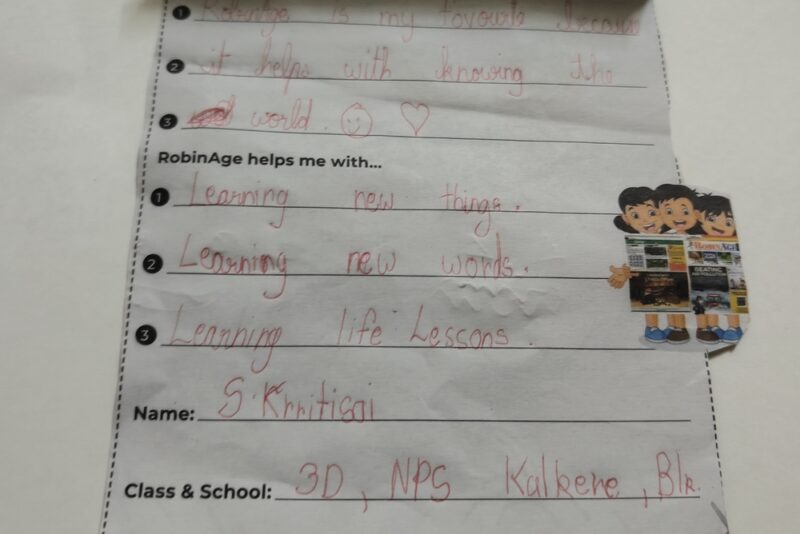 1 RobinAge is my favourite because
2 it helps with knowing the
3 world.
RobinAge helps me with...
1 Learning new things.
2 Learning new words.
3 Learning life Lessons.
ROBINAGE
BEATING
AIR POLLUTION
Name: S. Krritisai
Class & School: 3D, NPS Kalkere, Blr.